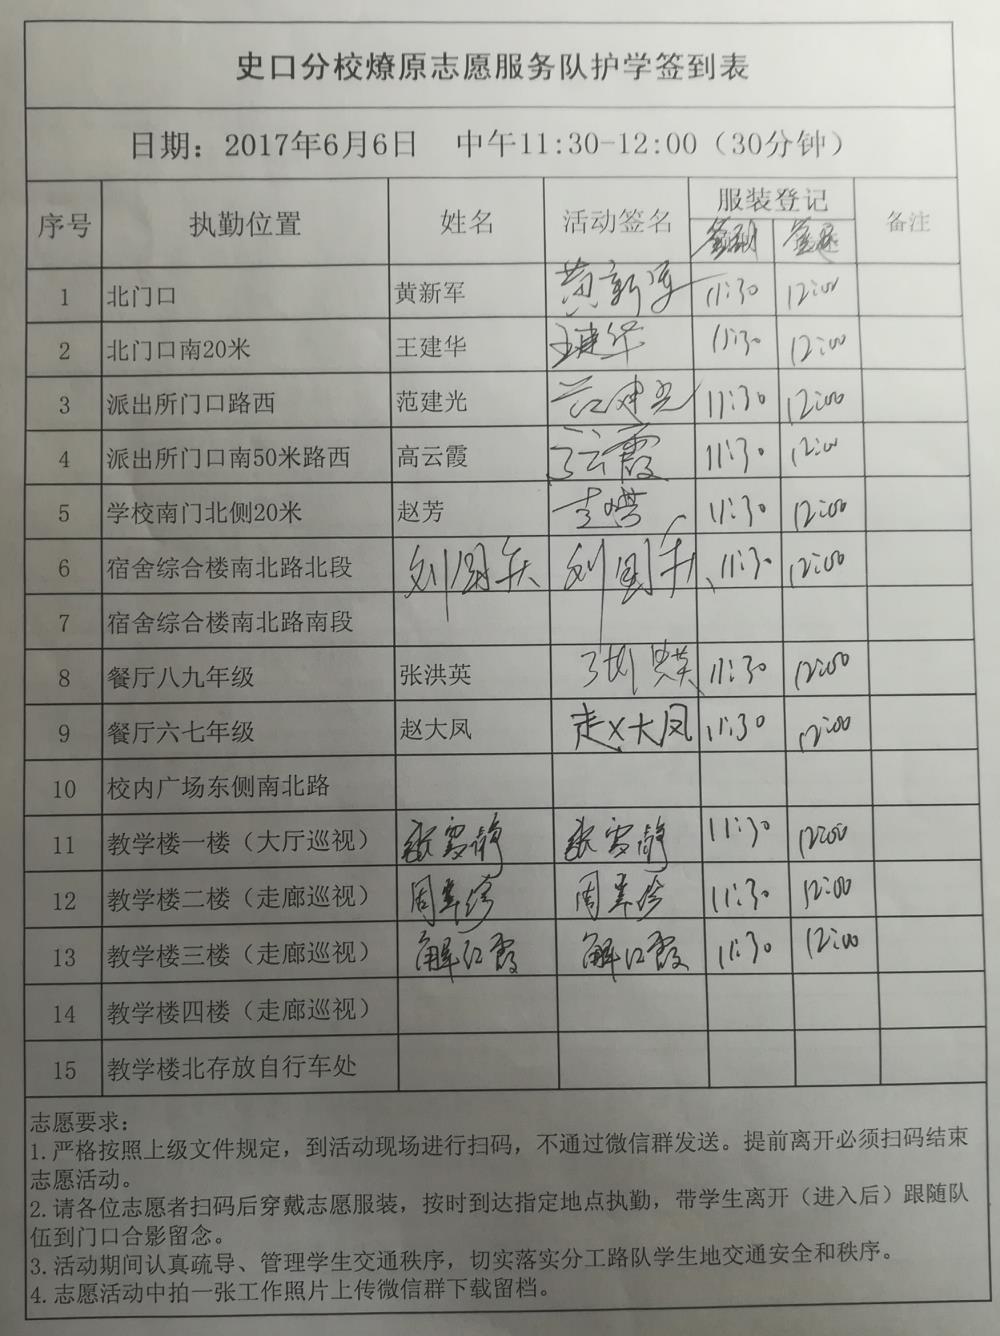 史口分校燎原志愿服务队护学签到表
日期：2017年6月6日 中午11:30-12:00（30分钟）
序号 执勤位置 姓名 活动签名 服装登记 备注
签到 签退
1 北门口 黄新军 黄新军 11:30 12:00
2 北门口南20米 王建华 王建华 11:30 12:00
3 派出所门口路西 范建光 范建光 11:30 12:00
4 派出所门口南50米路西 高云霞 高云霞 11:30 12:00
5 学校南门北侧20米 赵芳 11:30 12:00
6 宿舍综合楼南北路北段 11:30 12:00
7 宿舍综合楼南北路南段
8 餐厅八九年级 张洪英 张洪英 11:30 12:00
9 餐厅六七年级 赵大凤 赵大凤 11:30 12:00
10 校内广场东侧南北路
11 教学楼一楼（大厅巡视） 张雪静 张雪静 11:30 12:00
12 教学楼二楼（走廊巡视） 11:30 12:00
13 教学楼三楼（走廊巡视） 解红霞 解红霞 11:30 12:00
14 教学楼四楼（走廊巡视）
15 教学楼北存放自行车处
志愿要求：
1.严格按照上级文件规定，到活动现场进行扫码，不通过微信群发送。提前离开必须扫码结束
志愿活动。
2.请各位志愿者扫码后穿戴志愿服装，按时到达指定地点执勤，带学生离开（进入后）跟随队
伍到门口合影留念。
3.活动期间认真疏导、管理学生交通秩序，切实落实分工路队学生地交通安全和秩序。
4.志愿活动中拍一张工作照片上传微信群下载留档。